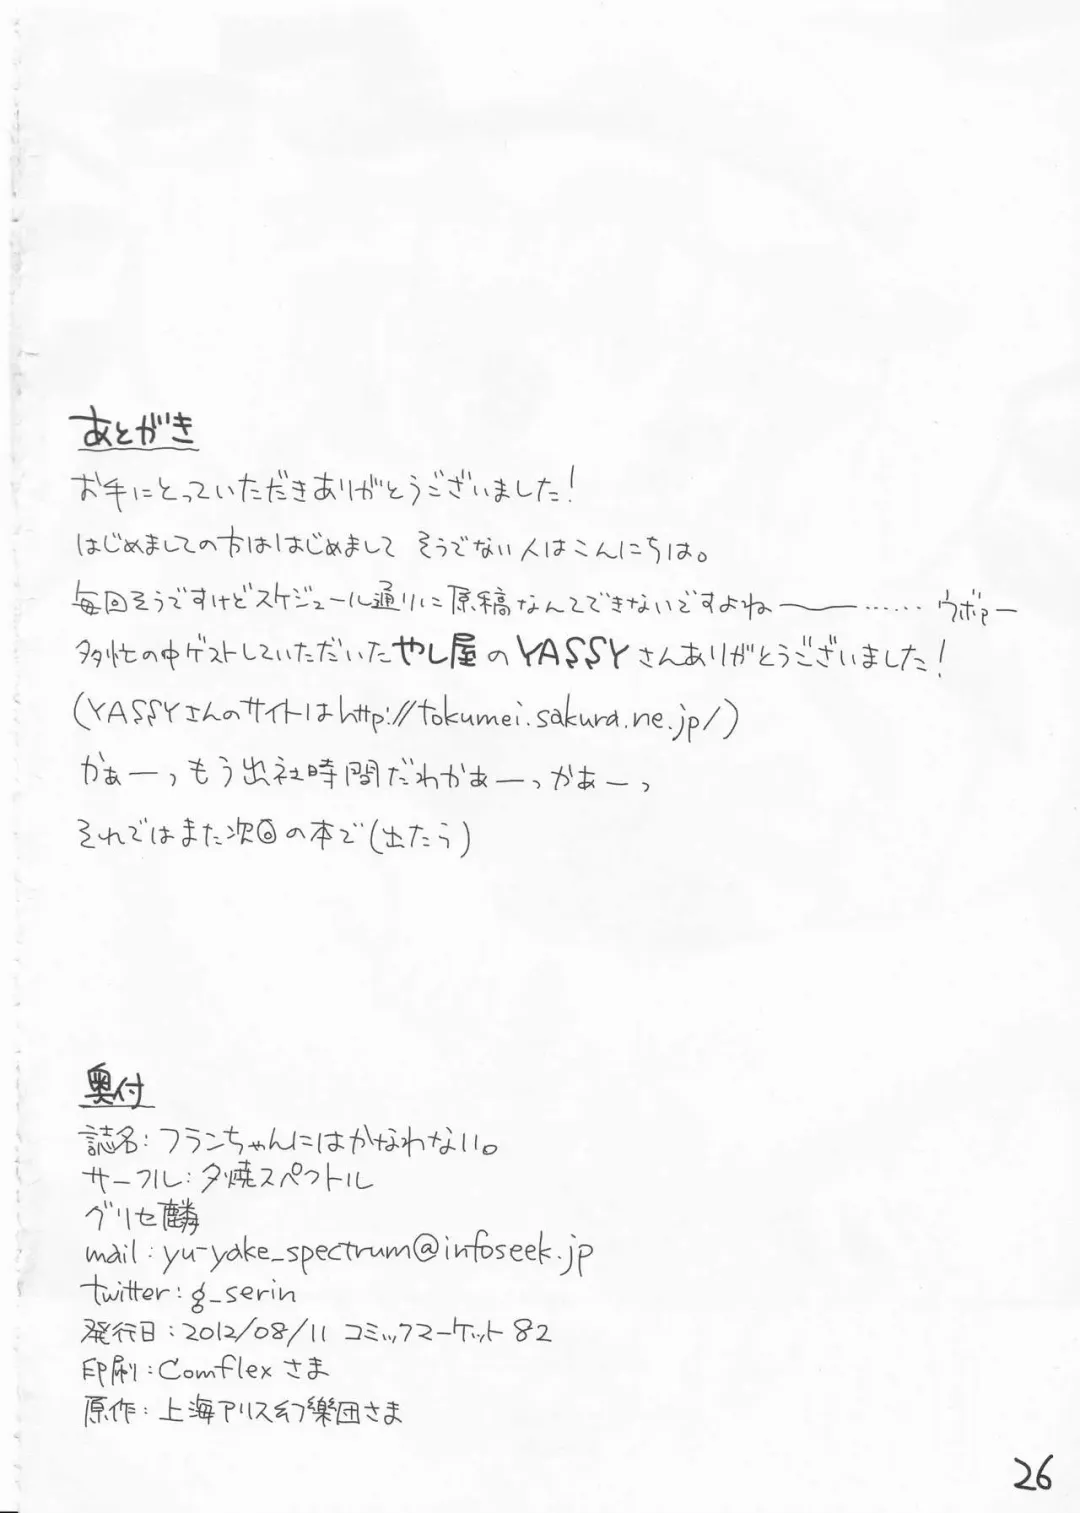 あとがき
お手にとっていただきありがとうございました!
はじめましての方ははじめまして そうでない人はこんにちは。
毎回そうですけどスケジュール通りに原稿なんてできないですよね―――…… ウボァー
多忙の中ゲストしていただいたやし屋のYASSYさんありがとうございました!
(YASSYさんのサイトはhttp://tokumei.sakura.ne.jp/)
かぁーっもう出社時間だわかぁーっかぁーっ
それではまた次回の本で(出たら)
奥付
誌名:フランちゃんにはかなわない。
サークル:夕焼スペクトル
グリセ麟
mail:yu-yake_spectrum@infoseek.jp
twitter:g_serin
発行日:2012/08/11 コミックマーケット82
印刷:Comflexさま
原作:上海アリス幻樂団さま
26